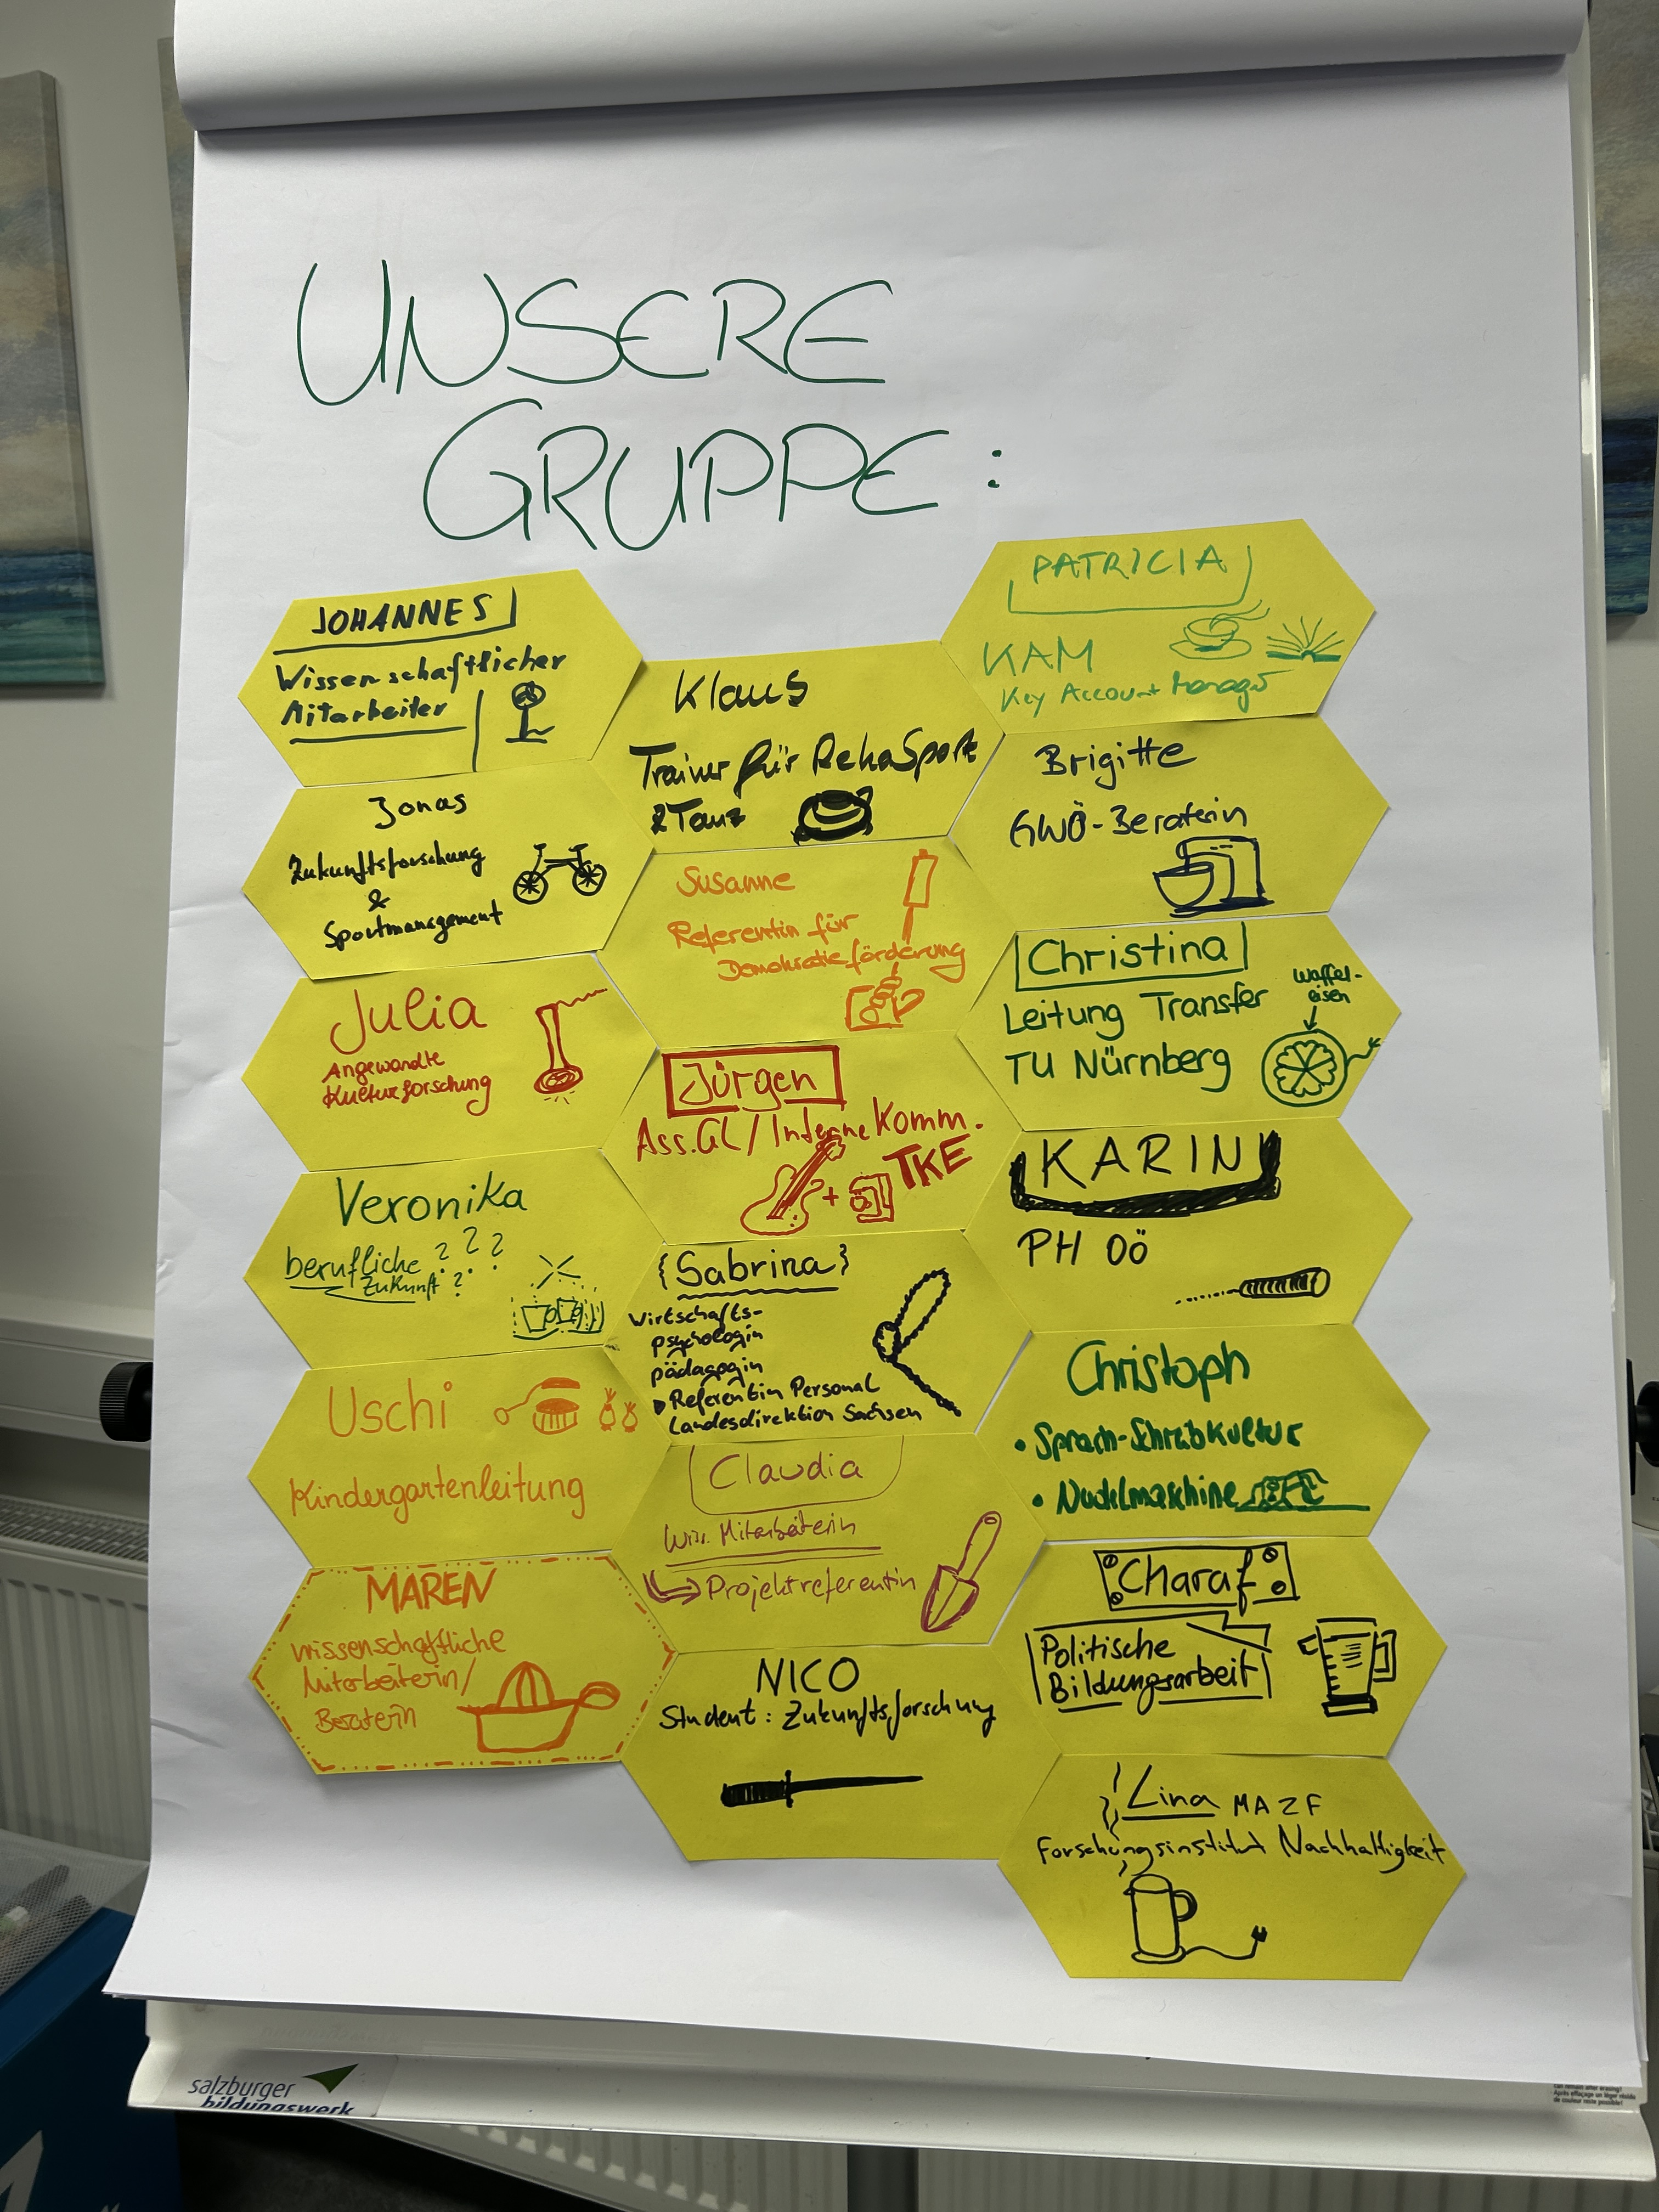 UNSERE
GRUPPE:
JOHANNES
Wissenschaftlicher
Mitarbeiter
Jonas
Zukunftsforschung
&
Sportmanagement
Julia
Angewandte
Kulturforschung
Veronika
berufliche ? ? ?
Zukunft ?
Uschi
Kindergartenleitung
MAREN
wissenschaftliche
Mitarbeiterin/
Beraterin
Klaus
Trainer für RehaSport
& Tanz
Susanne
Referentin für
Demokratieförderung
Jürgen
Ass.GL / Interne Komm.
+ TKE
{Sabrina}
Wirtschafts-
psychologin
pädagogin
Referentin Personal
Landesdirektion Sachsen
Claudia
Wiss. Mitarbeiterin
Projektreferentin
NICO
Student: Zukunftsforschung
PATRICIA
KAM
Key Account Manager
Brigitte
GWÖ-Beraterin
Christina
Leitung Transfer
TU Nürnberg
Waffel-
eisen
KARIN
PH OÖ
Christoph
• Sprach-Schreibkultur
• Nudelmaschine
Charaf
Politische
Bildungsarbeit
Lina MA ZF
Forschungsinstitut Nachhaltigkeit
salzburger
bildungswerk